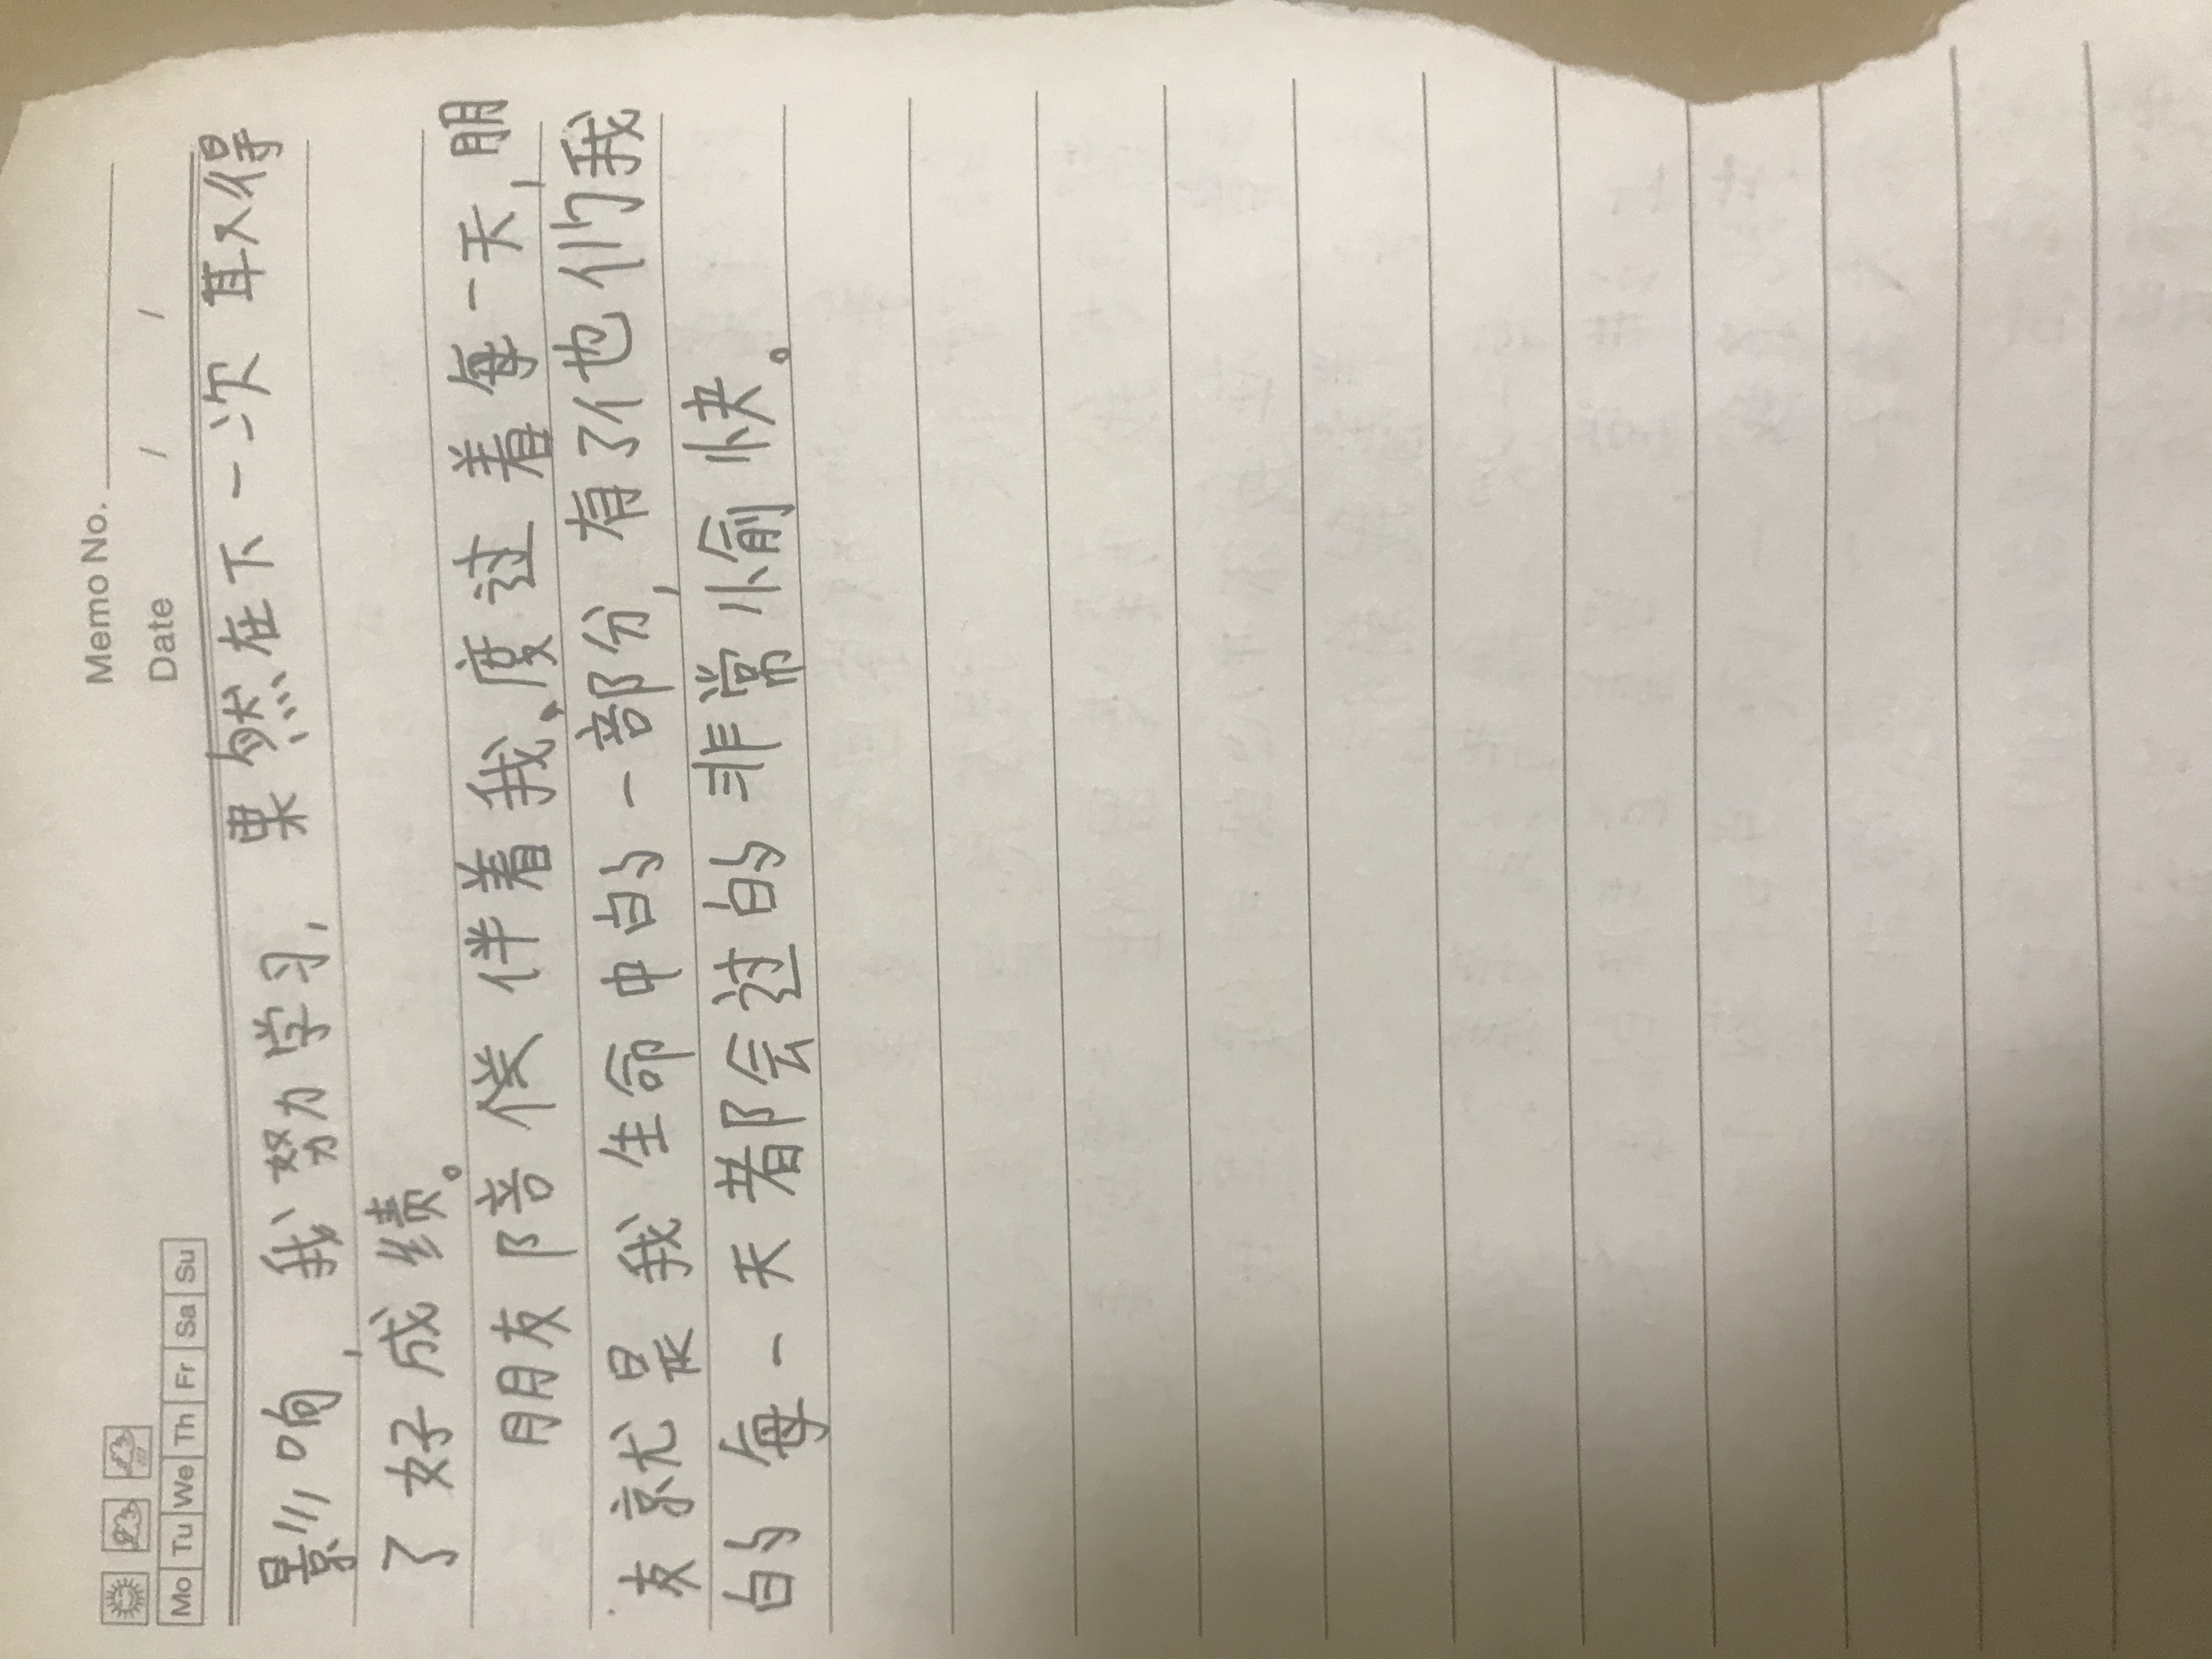 Memo No.
Mo Tu We Th Fr Sa Su Date / /
影响,我努力学习,果然在下一次取得
了好成绩。
朋友陪伴着我、度过着每一天,朋
友就是我生命中的一部份,有了他们我
的每一天都会过的非常愉快。